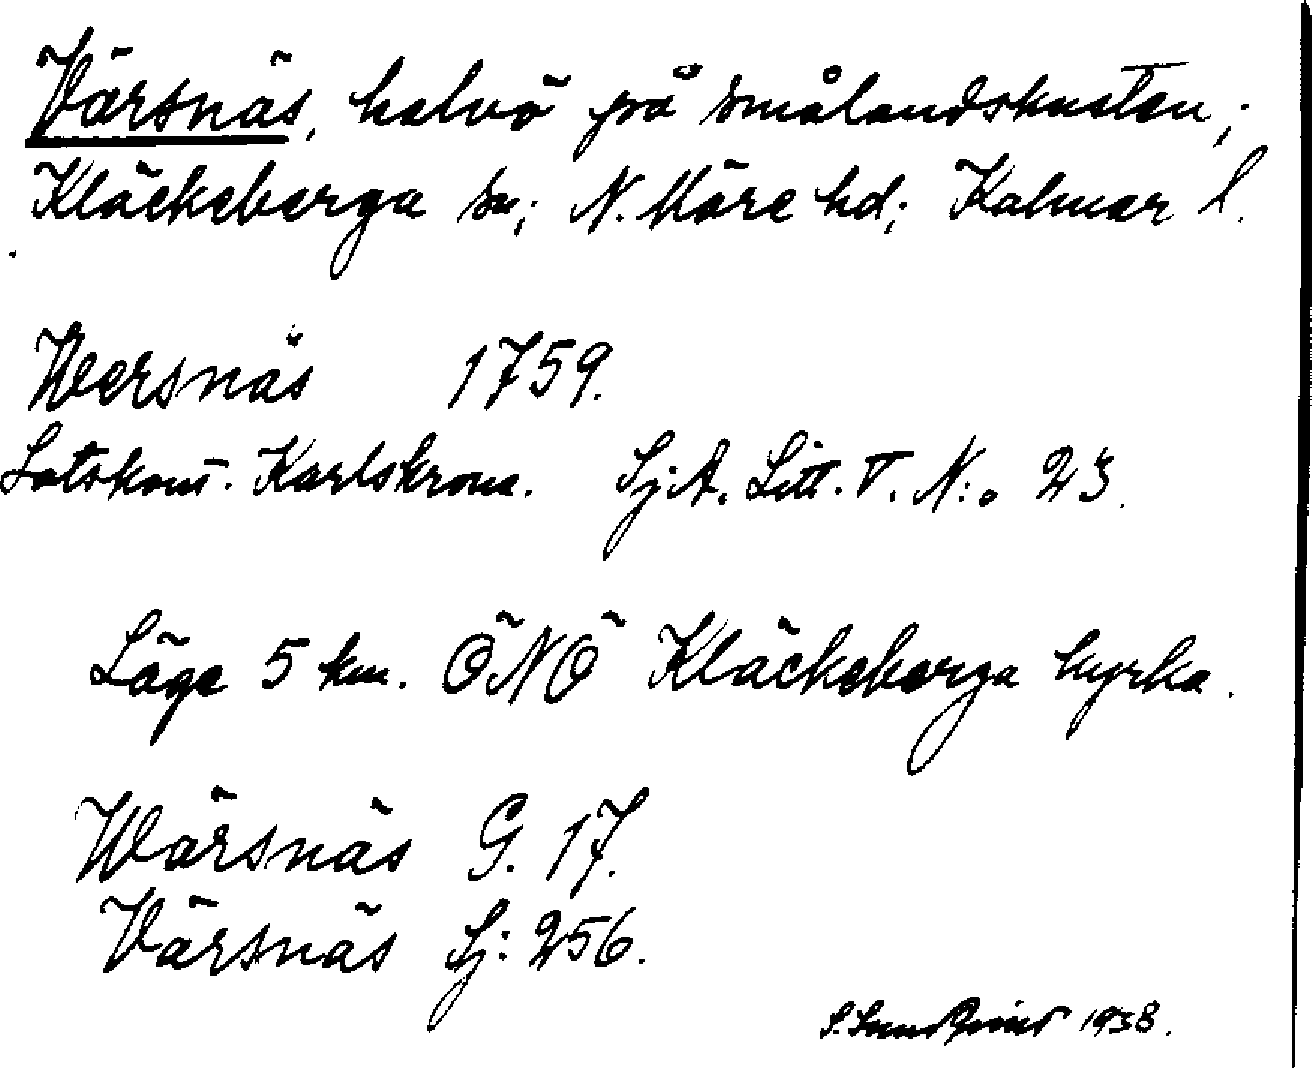 Värsnäs, halvö på Smålandskusten;
Kläckeberga sn; N. Möre hd; Kalmar l.
Wersnäs 1759.
Lotskont. Karlskrona. SjA. Litt. V. N:o 23.
Läge 5 km. ÖNÖ Kläckeberga kyrka.
Wärsnäs G. 17.
Värsnäs Sj: 256.
S. 1938.